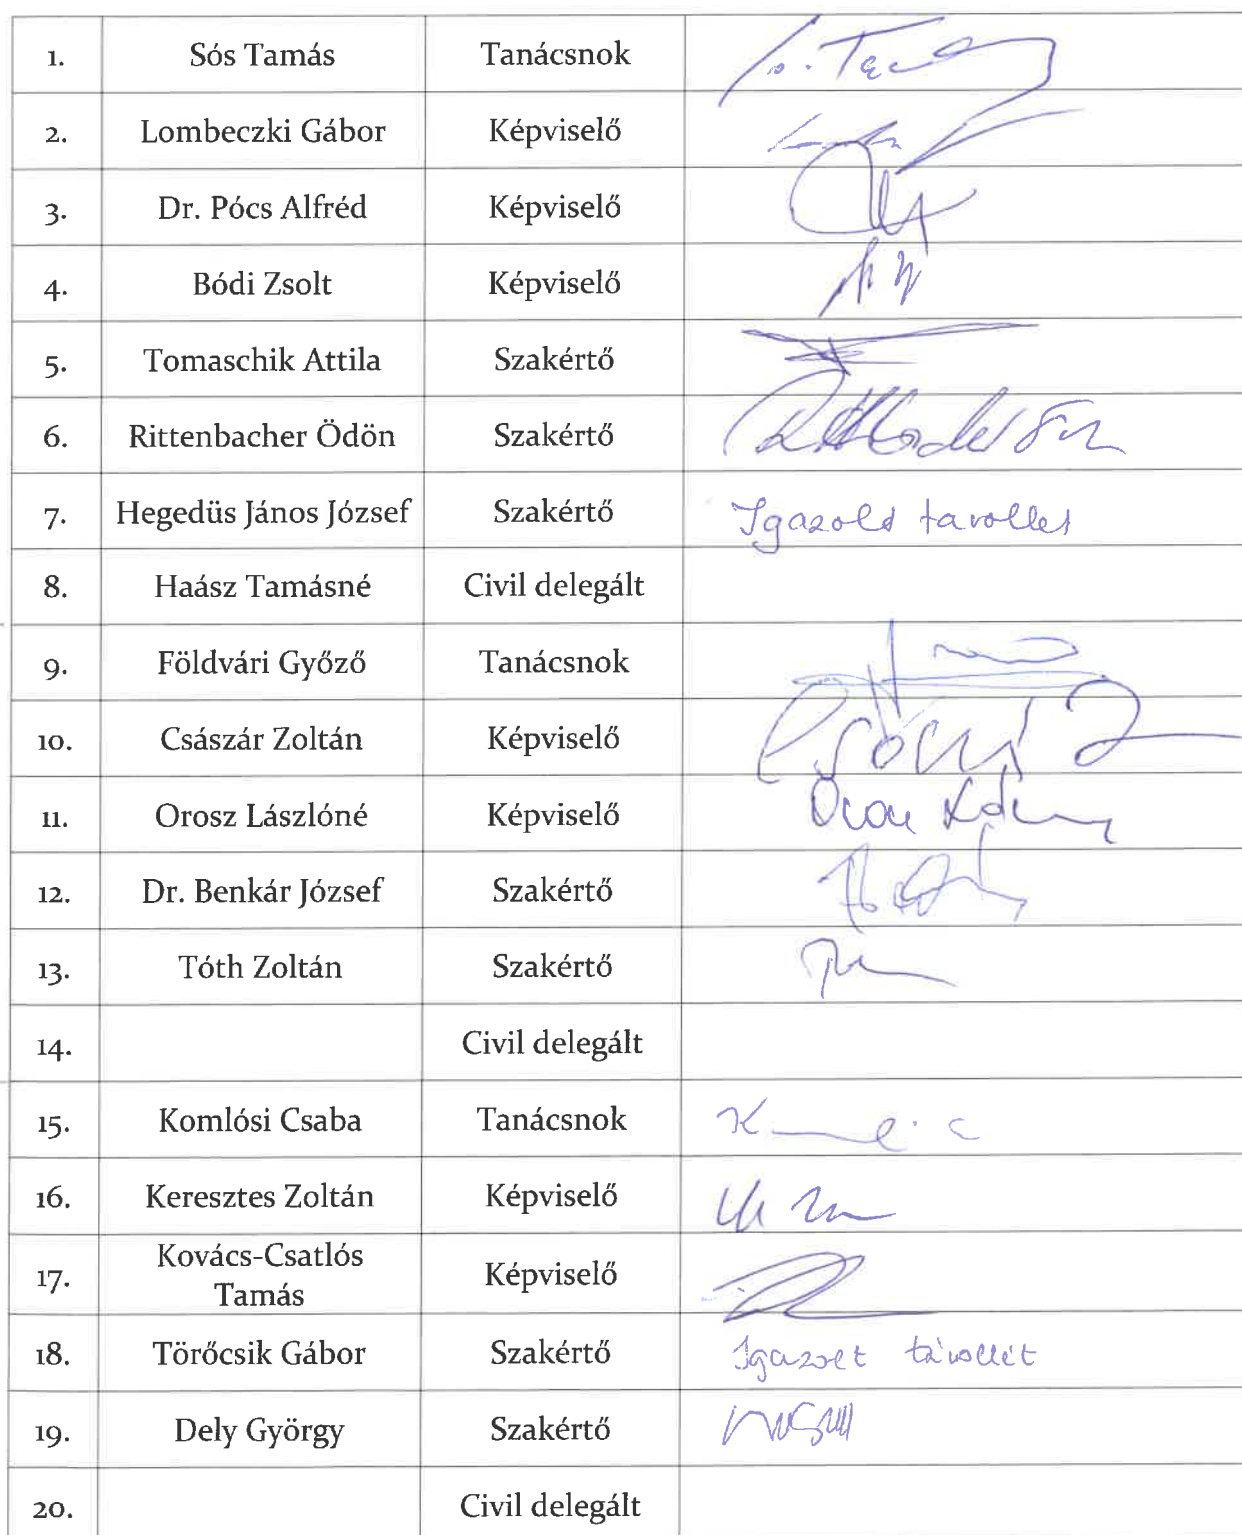 1. Sós Tamás Tanácsnok
2. Lombeczki Gábor Képviselő
3. Dr. Pócs Alfréd Képviselő
4. Bódi Zsolt Képviselő
5. Tomaschik Attila Szakértő
6. Rittenbacher Ödön Szakértő
7. Hegedüs János József Szakértő Igazolt távollét
8. Haász Tamásné Civil delegált
9. Földvári Győző Tanácsnok
10. Császár Zoltán Képviselő
11. Orosz Lászlóné Képviselő
12. Dr. Benkár József Szakértő
13. Tóth Zoltán Szakértő
14. Civil delegált
15. Komlósi Csaba Tanácsnok
16. Keresztes Zoltán Képviselő
17. Kovács-Csatlós
Tamás Képviselő
18. Törőcsik Gábor Szakértő Igazolt távollét
19. Dely György Szakértő
20. Civil delegált